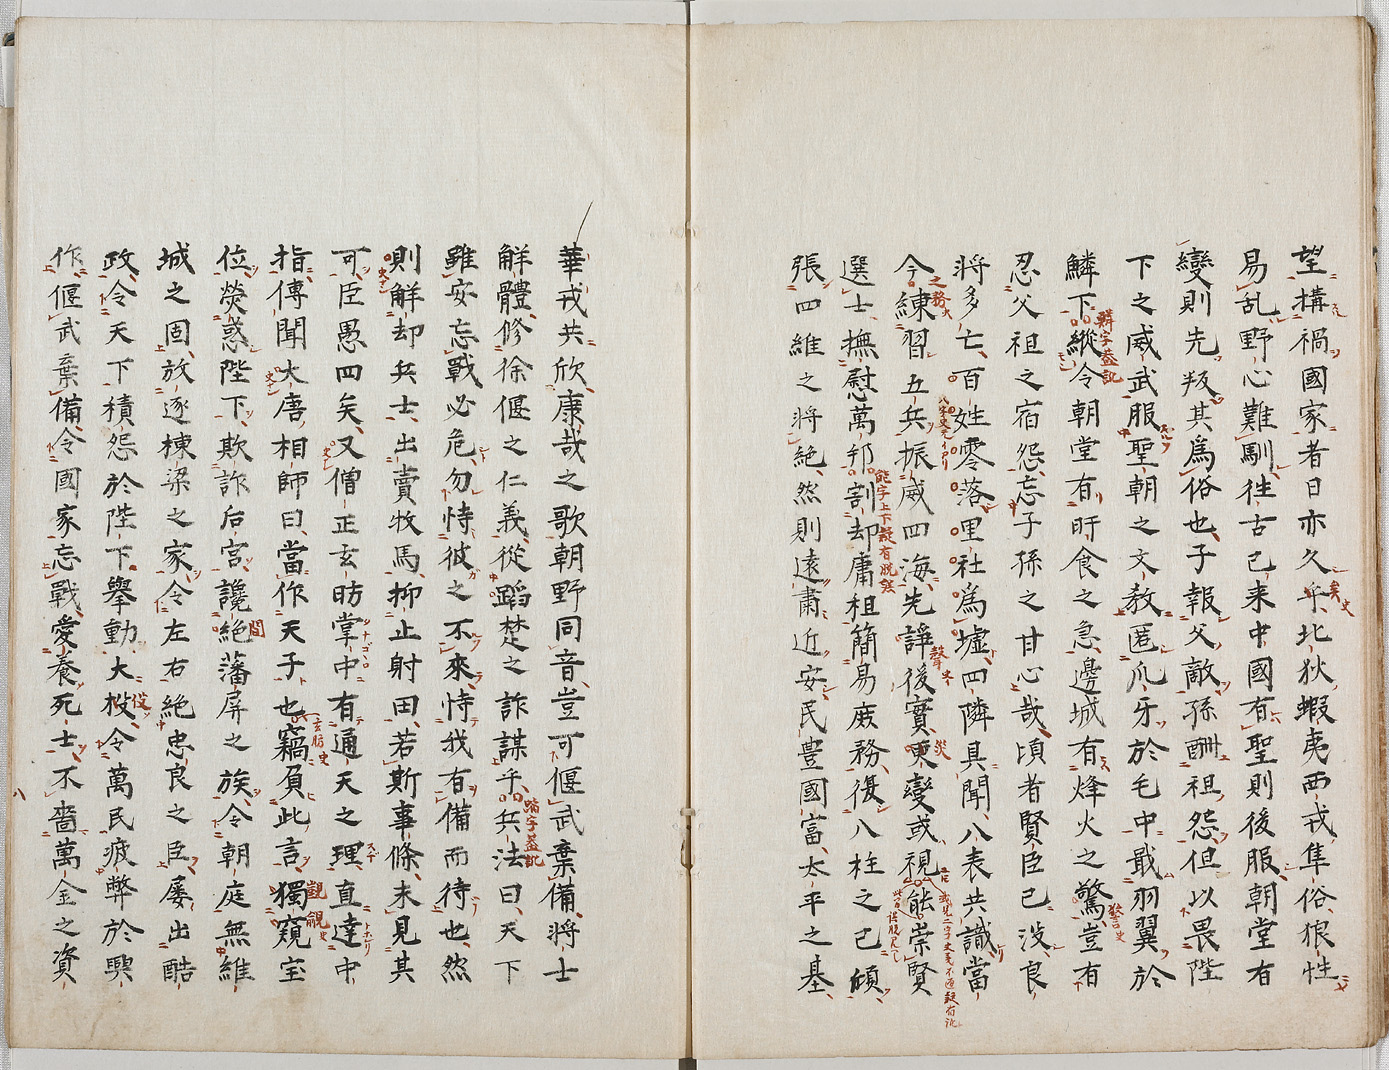 望構禍國家者日亦久乎北狄蝦夷西戎隼俗狼性
易乱野心難馴徃古已来中國有聖則後服朝堂有
變則先叛其為俗也子報父敵孫酬祖怨但以畏陛
下之威武服聖朝之文教匿爪牙於毛中戢羽翼於
鱗下縱令朝堂有旰食之急邊城有烽火之驚豈有
忍父祖之宿怨忘子孫之甘心哉頃者賢臣已没良
将多亡百姓零落里社為墟四隣具聞八表共識當
今練習五兵振威四海先諍後實東變或視能崇賢
選士撫慰萬邦割却庸租簡易庶務復八柱之已傾
張四維之将絶然則遠肅近安民豊國富太平之基
華戎共欣康哉之歌朝野同音豈可偃武棄備将士
解體修徐偃之仁義從蹈楚之詐謀乎兵法曰天下
雖安忘戰必危勿恃彼之不來恃我有備而待也然
則解却兵士出賣牧馬抑止射田若斯事條未見其
可臣愚四矣又僧正玄昉掌中有通天之理直達中
指傳聞大唐相師曰當作天子也竊負此言獨窺宝
位熒惑陛下欺詐后宮讒絶藩屏之族令朝庭無維
城之固放逐棟梁之家令左右絶忠良之臣屡出酷
政令天下積怨於陛下擧動大梭令萬民疲弊於興
作偃武棄備令國家忘戰愛養死士不嗇萬金之資